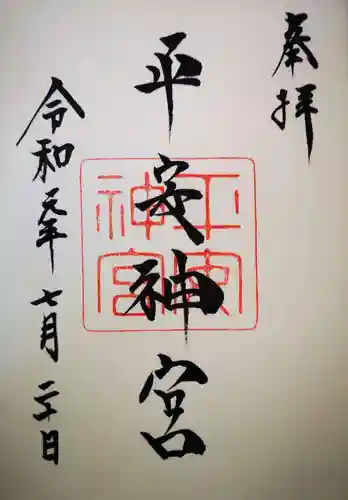 奉拝
平安神宮
令和元年七月二十日
平安神宮